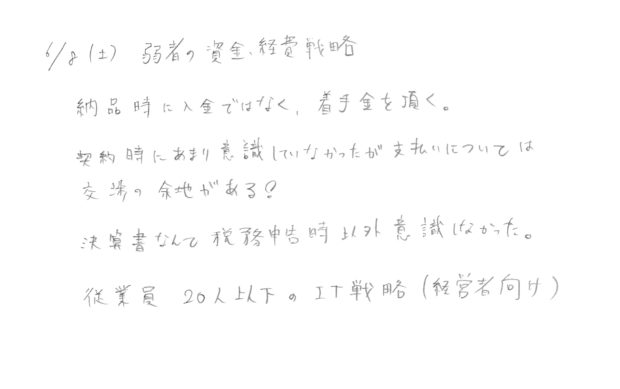 6/8(土) 弱者の資金、経費戦略
納品時に入金ではなく、着手金を頂く。
契約時にあまり意識していなかったが支払いについては
交渉の余地がある?
決算書なんて税務申告時以外意識しなかった。
従業員 20人以下のIT戦略(経営者向け)